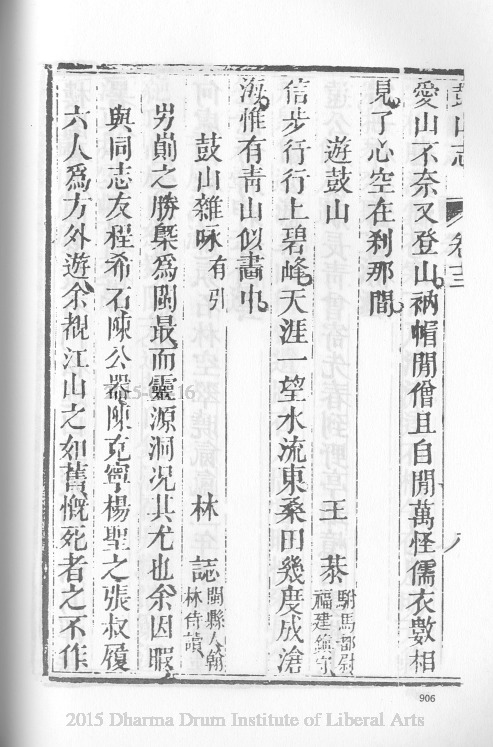 鼓山志 卷十三 八
愛山不奈又登山衲帽閒僧且自閒萬怪儒衣數相
見了心空在刹那間
遊鼓山 王 恭 駙馬都尉福建鎮守
信步行行上碧峰天涯一望水流東桑田幾度成滄
海惟有靑山似畵中
鼓山雜咏 有引 林 誌 閩縣人翰林侍讀
屴崱之勝槩爲閩最而靈源洞况其尤也余因暇
與同志友程希石陳公器陳克寧楊聖之張叔履
六人爲方外遊余覩江山之如舊慨死者之不作
906
2015 Dharma Drum Institute of Liberal Arts